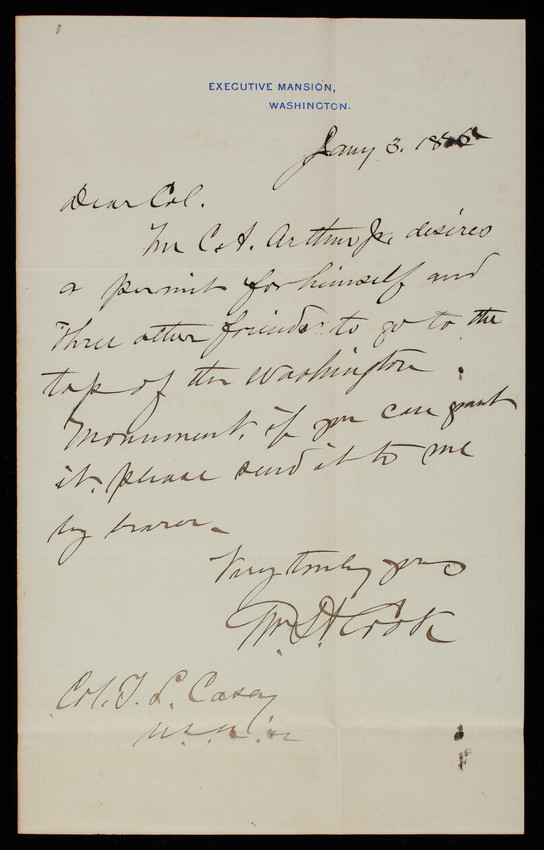 EXECUTIVE MANSION,
WASHINGTON.
Jany 3. 188
Dear Col.
Mr C. A. Arthur Jr. desires
a permit for himself and
three other friends to go to the
top of the Washington
Monument, if you can grant
it, please send it to me
by bearer.
Very truly yours
Wm H Crook
Col. T. L. Casey